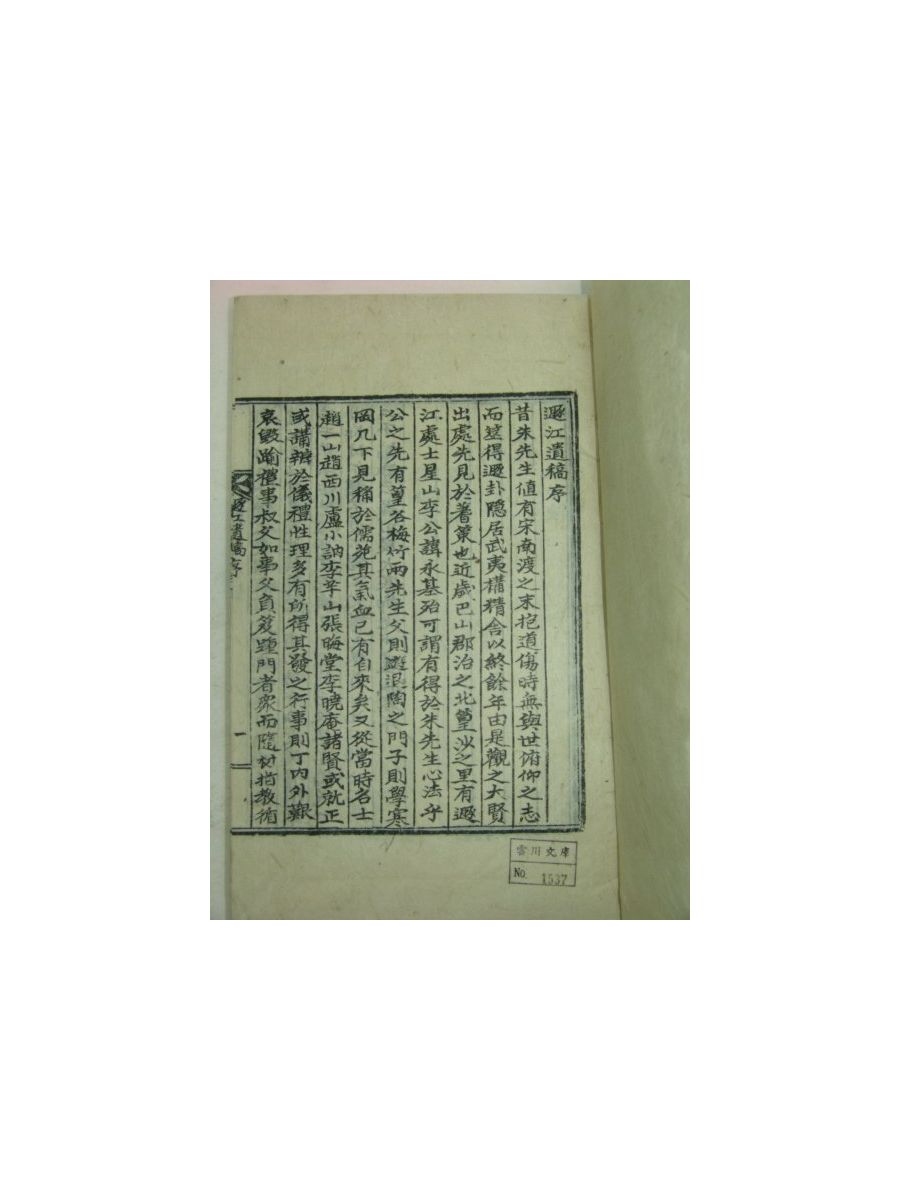 遯江遺稿序
昔朱先生値有宋南渡之末抱道傷時無與世俯仰之志
而筮得遯卦隱居武夷構精舍以終餘年由是觀之大賢
出處先見於蓍策也近歲巴山郡治之北篁沙之里有遯
江處士星山李公諱永基殆可謂有得於朱先生心法乎
公之先有篁谷梅竹兩先生父則遊退陶之門子則學寒
岡几下見稱於儒苑其氣血已有自來矣又從當時名士
趙一山趙西川盧小訥李芋山張晦堂李曉庵諸賢或就正
或講辨於儀禮性理多有所得其發之行事則丁內外艱
哀毀踰禮事叔父如事父負笈踵門者衆而隨材指教循
遯江遺稿序
一
雲川文庫
No. 1537